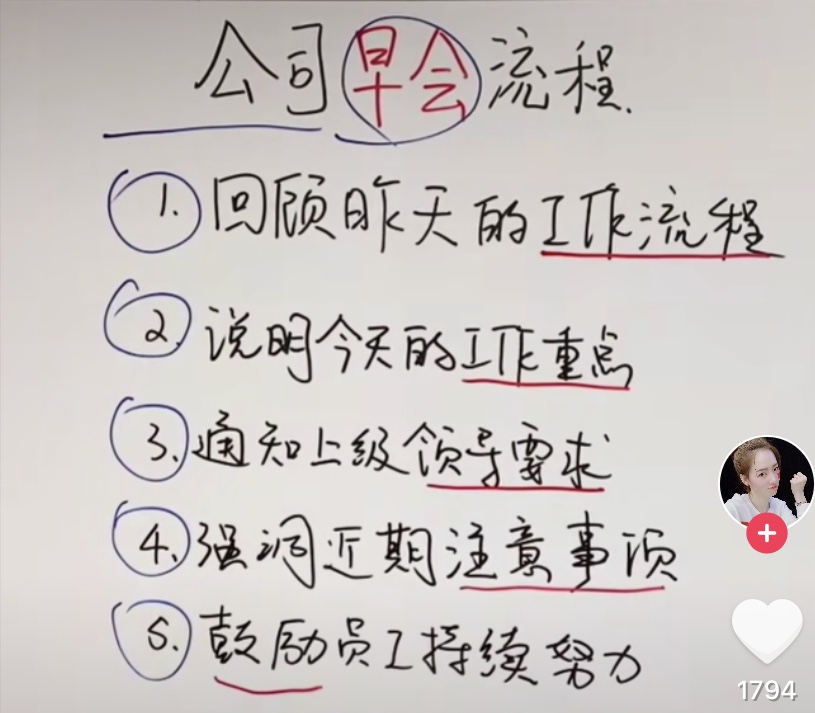 公司早会流程.
1. 回顾昨天的工作流程
2. 说明今天的工作重点
3. 通知上级领导要求
4. 强调近期注意事项
5. 鼓励员工持续努力
1794